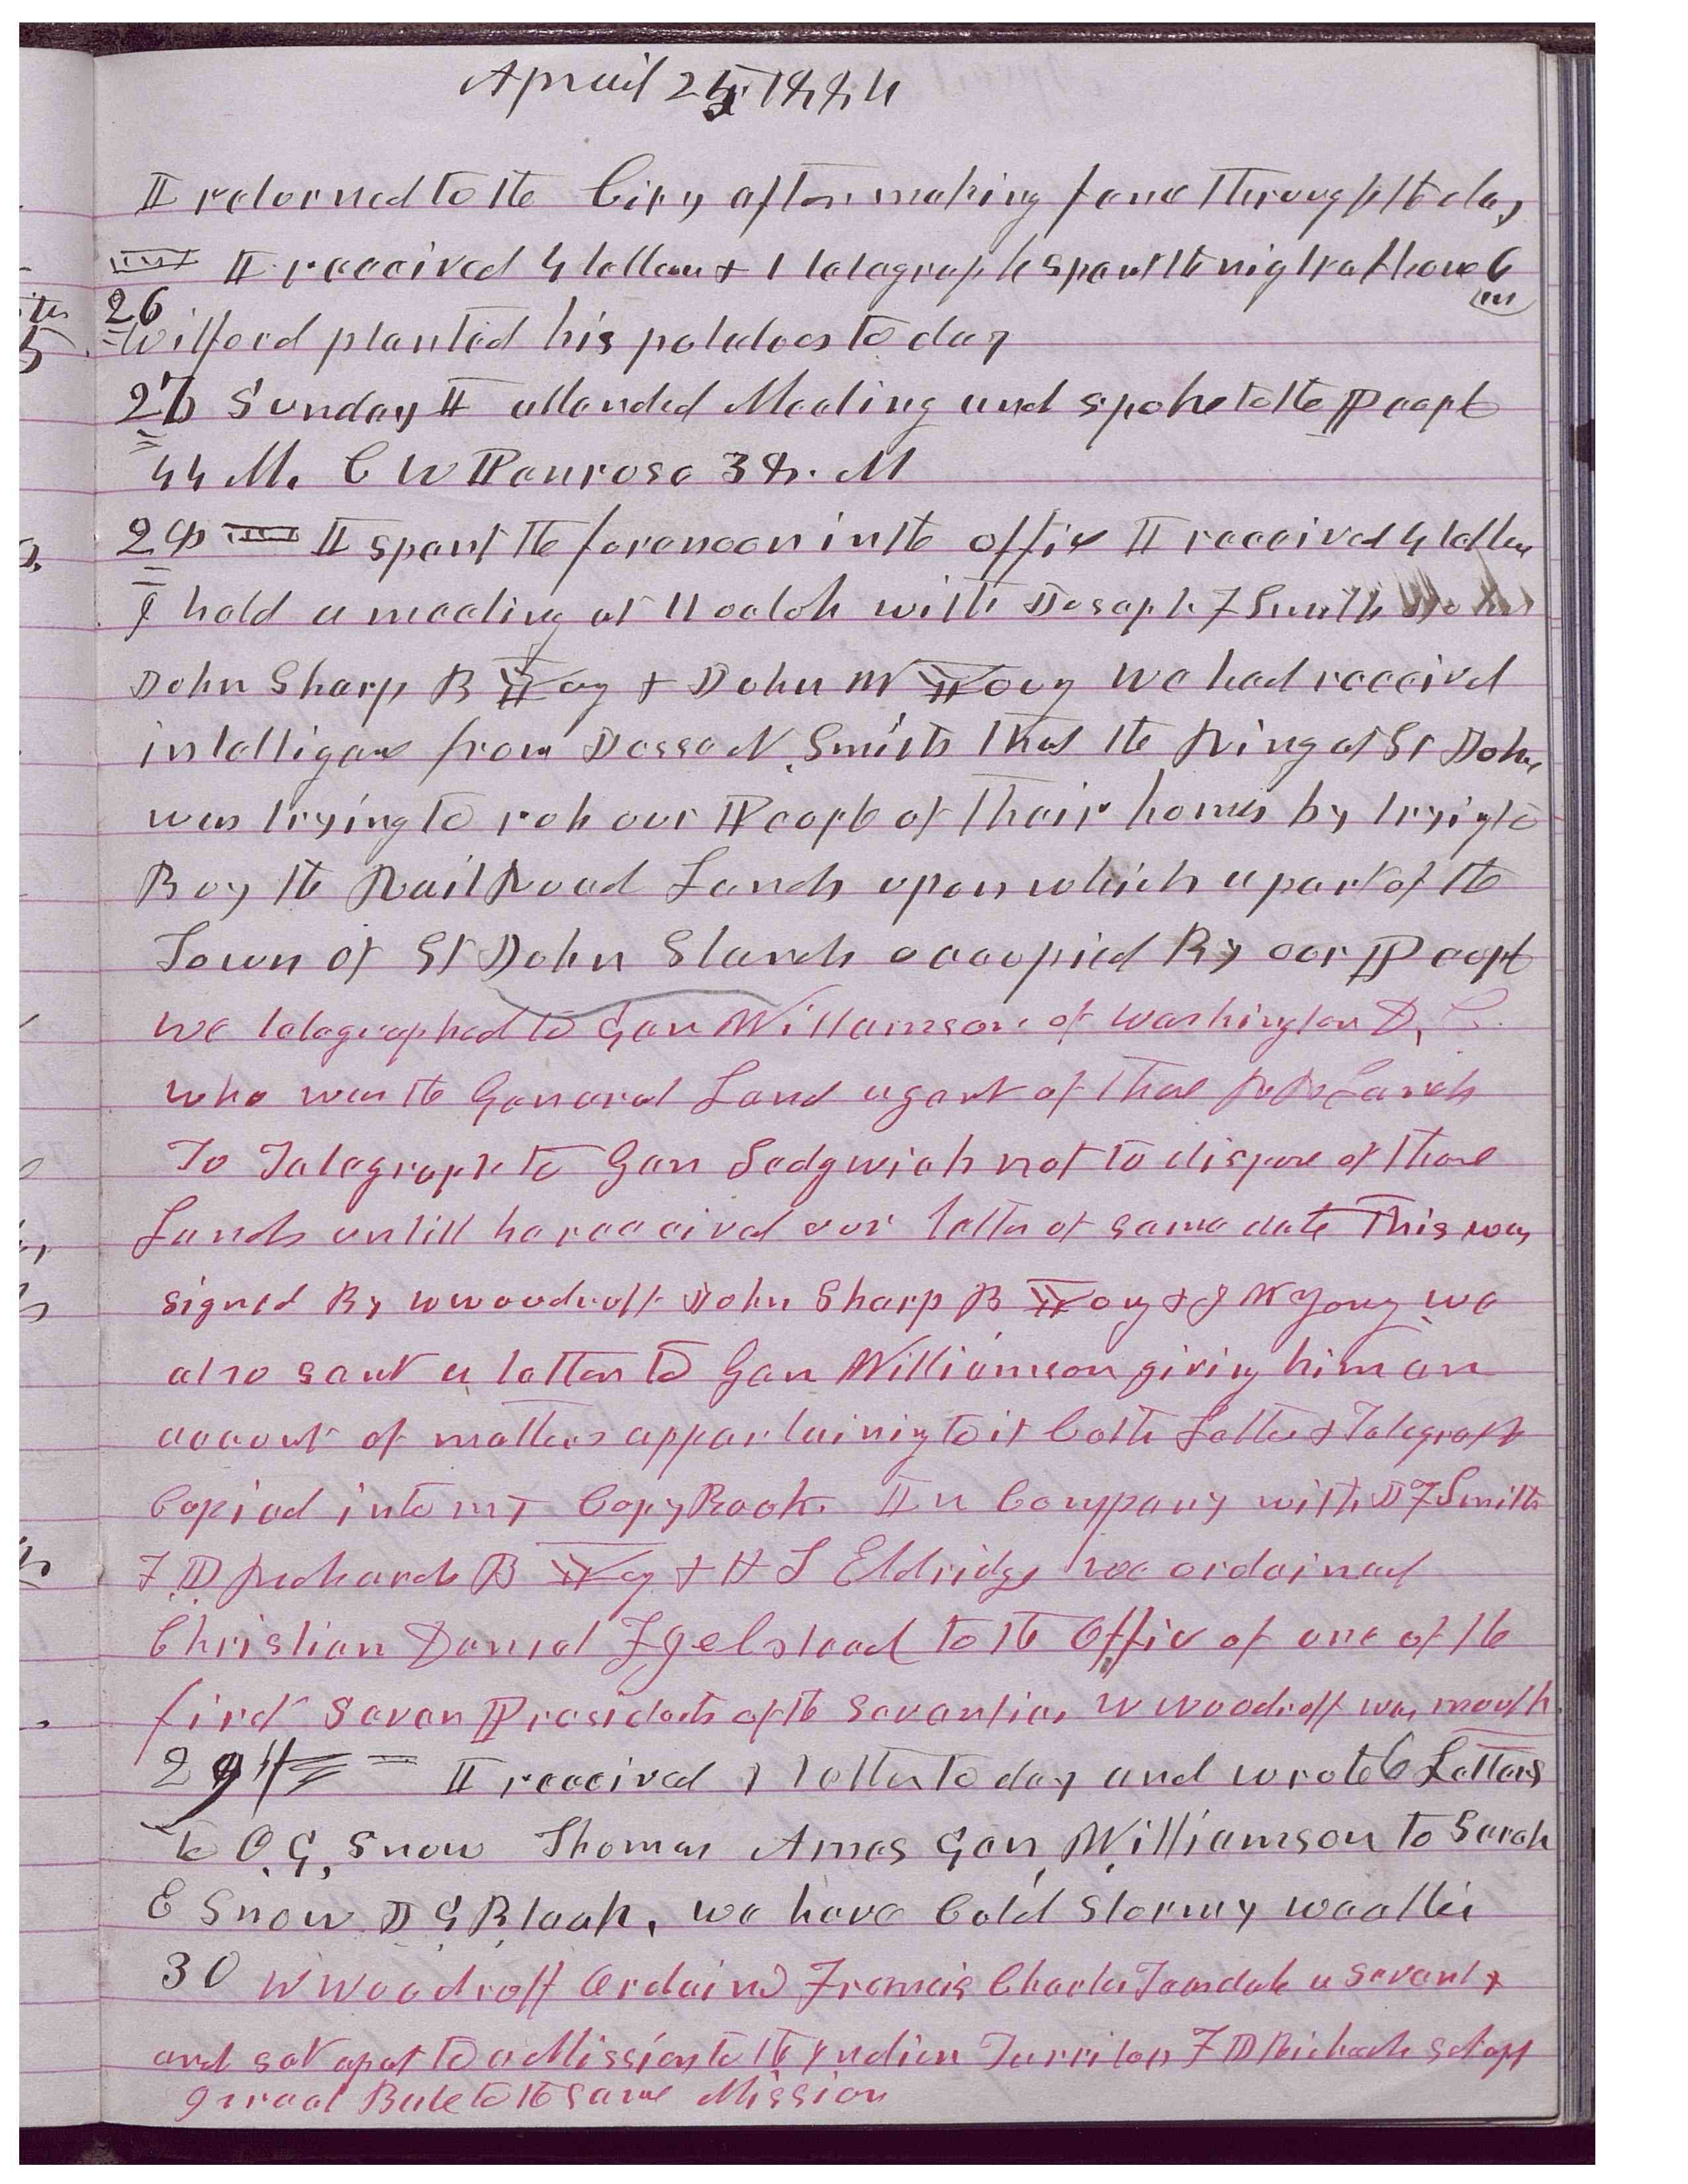 Aprail 25, 1884
I retorned to the City after making fence through the day
I received 4 letters & 1 telegraph spent the night at home 6
26
m
Wilford planted his potatoes to day
27 Sunday I attended Meeting and spoke to the People
44 M. C W Penrose 38. M
28 I spent the forenoon in the office I received 4 letters
I held a meeting at 11 oclok with Joseph F Smith
John Sharp B Yog & John W Young we had received
intelligence from Jesse N. Smith that the Ring at St John
was trying to rob our People of their homes by trying to
Buy the Rail Road Lands upon which a part of the
Town of St John Stands occopied By our People
we telegraphed to Gen Williamson of Washington D, C.
who was the General Land agent of those R R Lands
To Telegraph to Gen Sedgwick not to dispose of those
Lands untill he received our letter of same date This was
signed By W Woodruff John Sharp B Yog & J W Yong we
also sent a letter to Gen Williamson giving him an
account of matters appertaining to it Both Letter & Telegraph
Copied into my Copy Book. In Company with J F Smith
F D Richards B Yg & H S Eldridge we ordained
Christian Daniel Fjelstead to the office of one of the
first Seven Presidents of the Seventies W Woodruff was mouth
29th I received letter to day and wrote 6 Letters
to O, G, Snow Thomas Ames Gen Williamson to Sarah
E Snow J G Bleak, we have Cold Stormy weather
30 W Woodruff Ordaind Francis Charles a Seventy
and set apart to a Mission to the Indian Territory F D Richards set apt
Bute to the same Mission